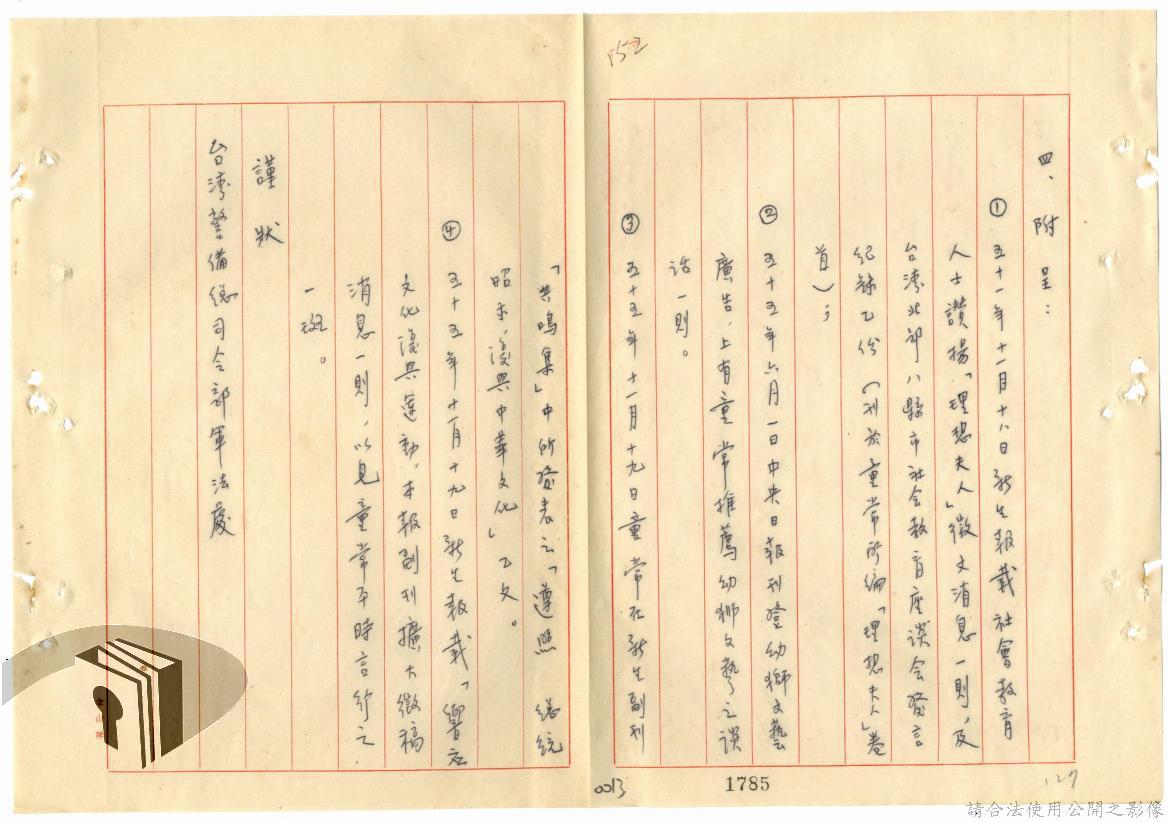 152
四、附呈：
① 五十一年十一月十八日新生報載社會教育
人士讚揚「理想夫人」徵文消息一則，及
台湾北部八縣市社会教育座談会發言
紀錄乙份（刋於童常所編「理想夫人」卷
首）；
② 五十五年六月一日中央日報刋登幼獅文藝
廣告，上有童常推薦幼獅文藝之談
話一則。
③ 五十五年十一月十九日童常在新生副刊
「共鳴集」中所發表之「遵照　總統
昭示，復興中華文化」乙文。
④ 五十五年十一月十九日新生報載「響应
文化復興運動，本報副刊擴大徵稿
消息一則，以見童常平時言行之
一斑。
謹狀
台湾警備總司令部軍法處
0013
1785
127
請合法使用公開之影像